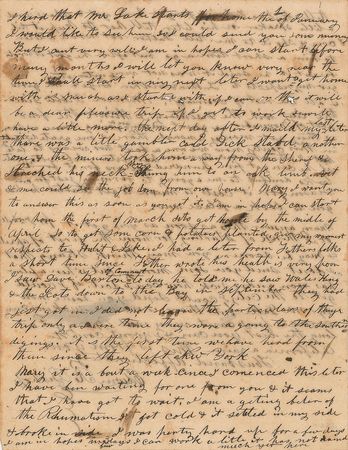 I heard that Mr Lake starts home the 1st of January
I would like to see him so I could send you some money
But I aint very well I am in hopes I can start before
many months I will let you know very near the
time I shall start in my next letter I want get home
with as much as I started with if I can so this it will
be a dear pleasure trip if I get to work I will
have a little more the next day after I mailed my letter
there was a little gambler cald Dick stabed another
one & the miners took him away from the Sherif &
streched his neck hung him to an oak limb west
& me could see the job don from our hovel Mary I want you
to answer this as soon as you get it I am in hopes I can start
for hom the first of march so to get home by the middle of
April so to get som corn & potatoes planted give my
respects to I had a leter from Father folks
a short time since Father wrote his health is very poor
I saw Dave Barton to day he told me he saw
& the Scots down to the Bay in September they had
just got in I did not learn the particulars of theyr
trip only were they ware a going to the Southern
digings it is the first time we have heard from
them since they left New York
Mary it is a bout a week since I comenced this leter
I have ben waiting for one from you & it seams
that I have got to wait I am a geting beter of
the Rhumatism I got cold & it setled in my side
& broke in side I was prety hard up for a few days
I am in hopes in a few days I can work a little it has not raind
much yet here